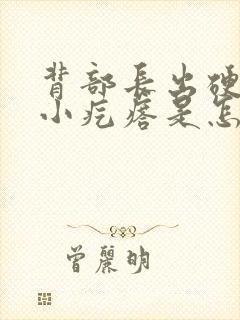 背部长出硬
小疙瘩是怎
曾麗明